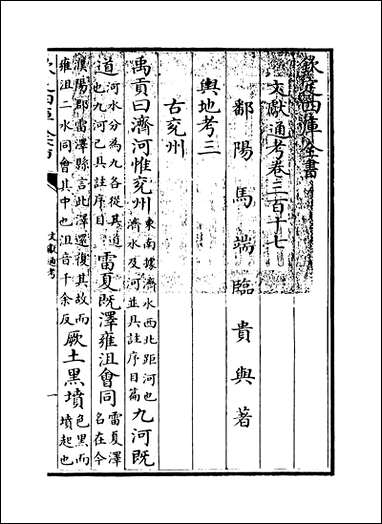 欽定四庫全書
文獻通考卷三百十七
鄱陽馬端臨貴與著
輿地考三
古兗州
禹貢曰濟河惟兗州東南據濟水西北距河也濟水及河並具註序目篇九河既
道河水分為九各從其道也九河已具註序目雷夏既澤雍沮會同雷夏澤名在今
濮陽郡雷澤縣言此澤還復其故而雍沮二水同會其中也沮音千余反厥土黑墳色黑而墳起也
文獻通考
一